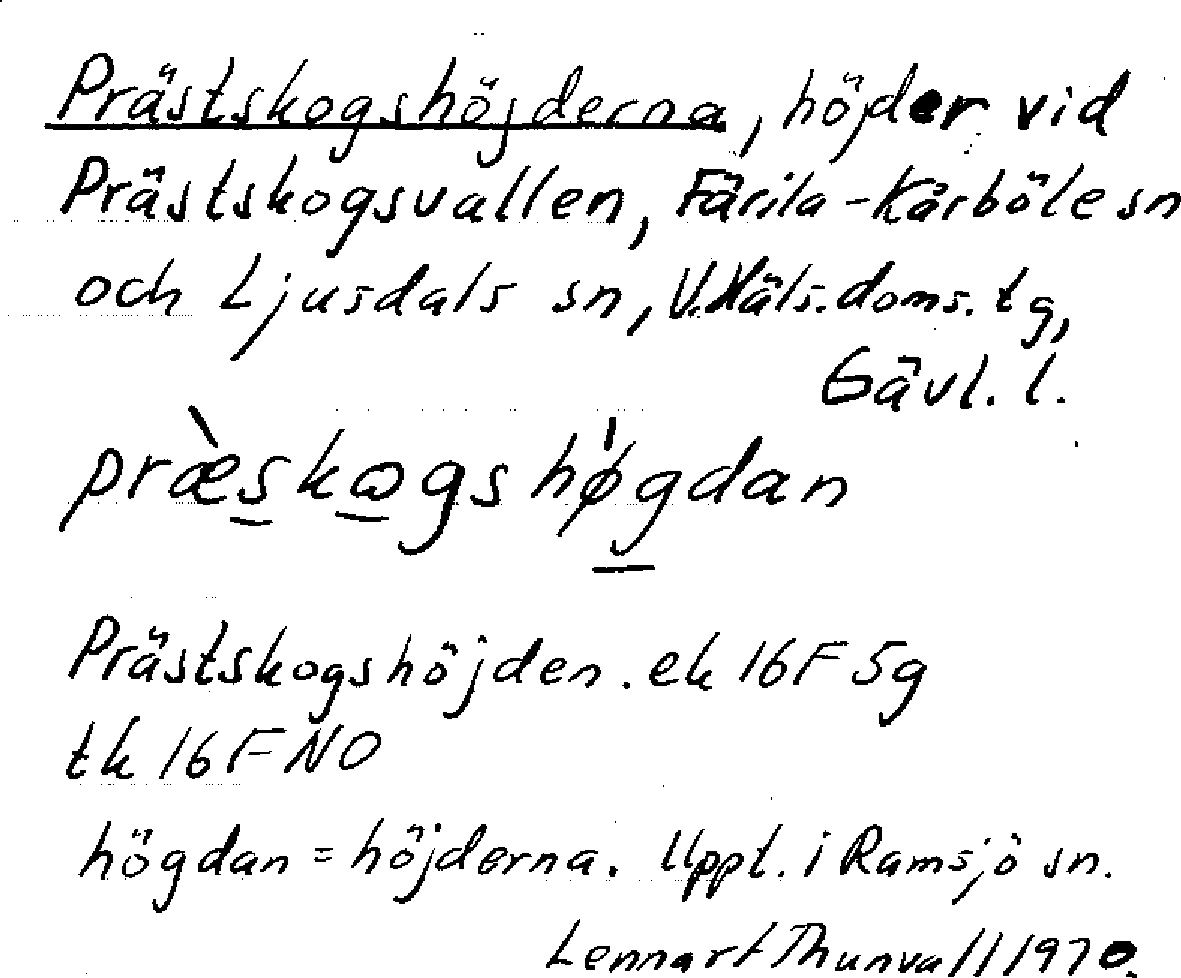 Prästskogshöjderna, höjder vid
Prästskogsvallen, Färila-Kårböle sn
och Ljusdals sn, V.Häls.doms.tg,
Gävl. l.
præ̀skωgshø̍gdan
Prästskogshöjden. ek 16F 5g
tk 16F NO
högdan = höjderna. Uppt. i Ramsjö sn.
Lennart Thunvall 1970